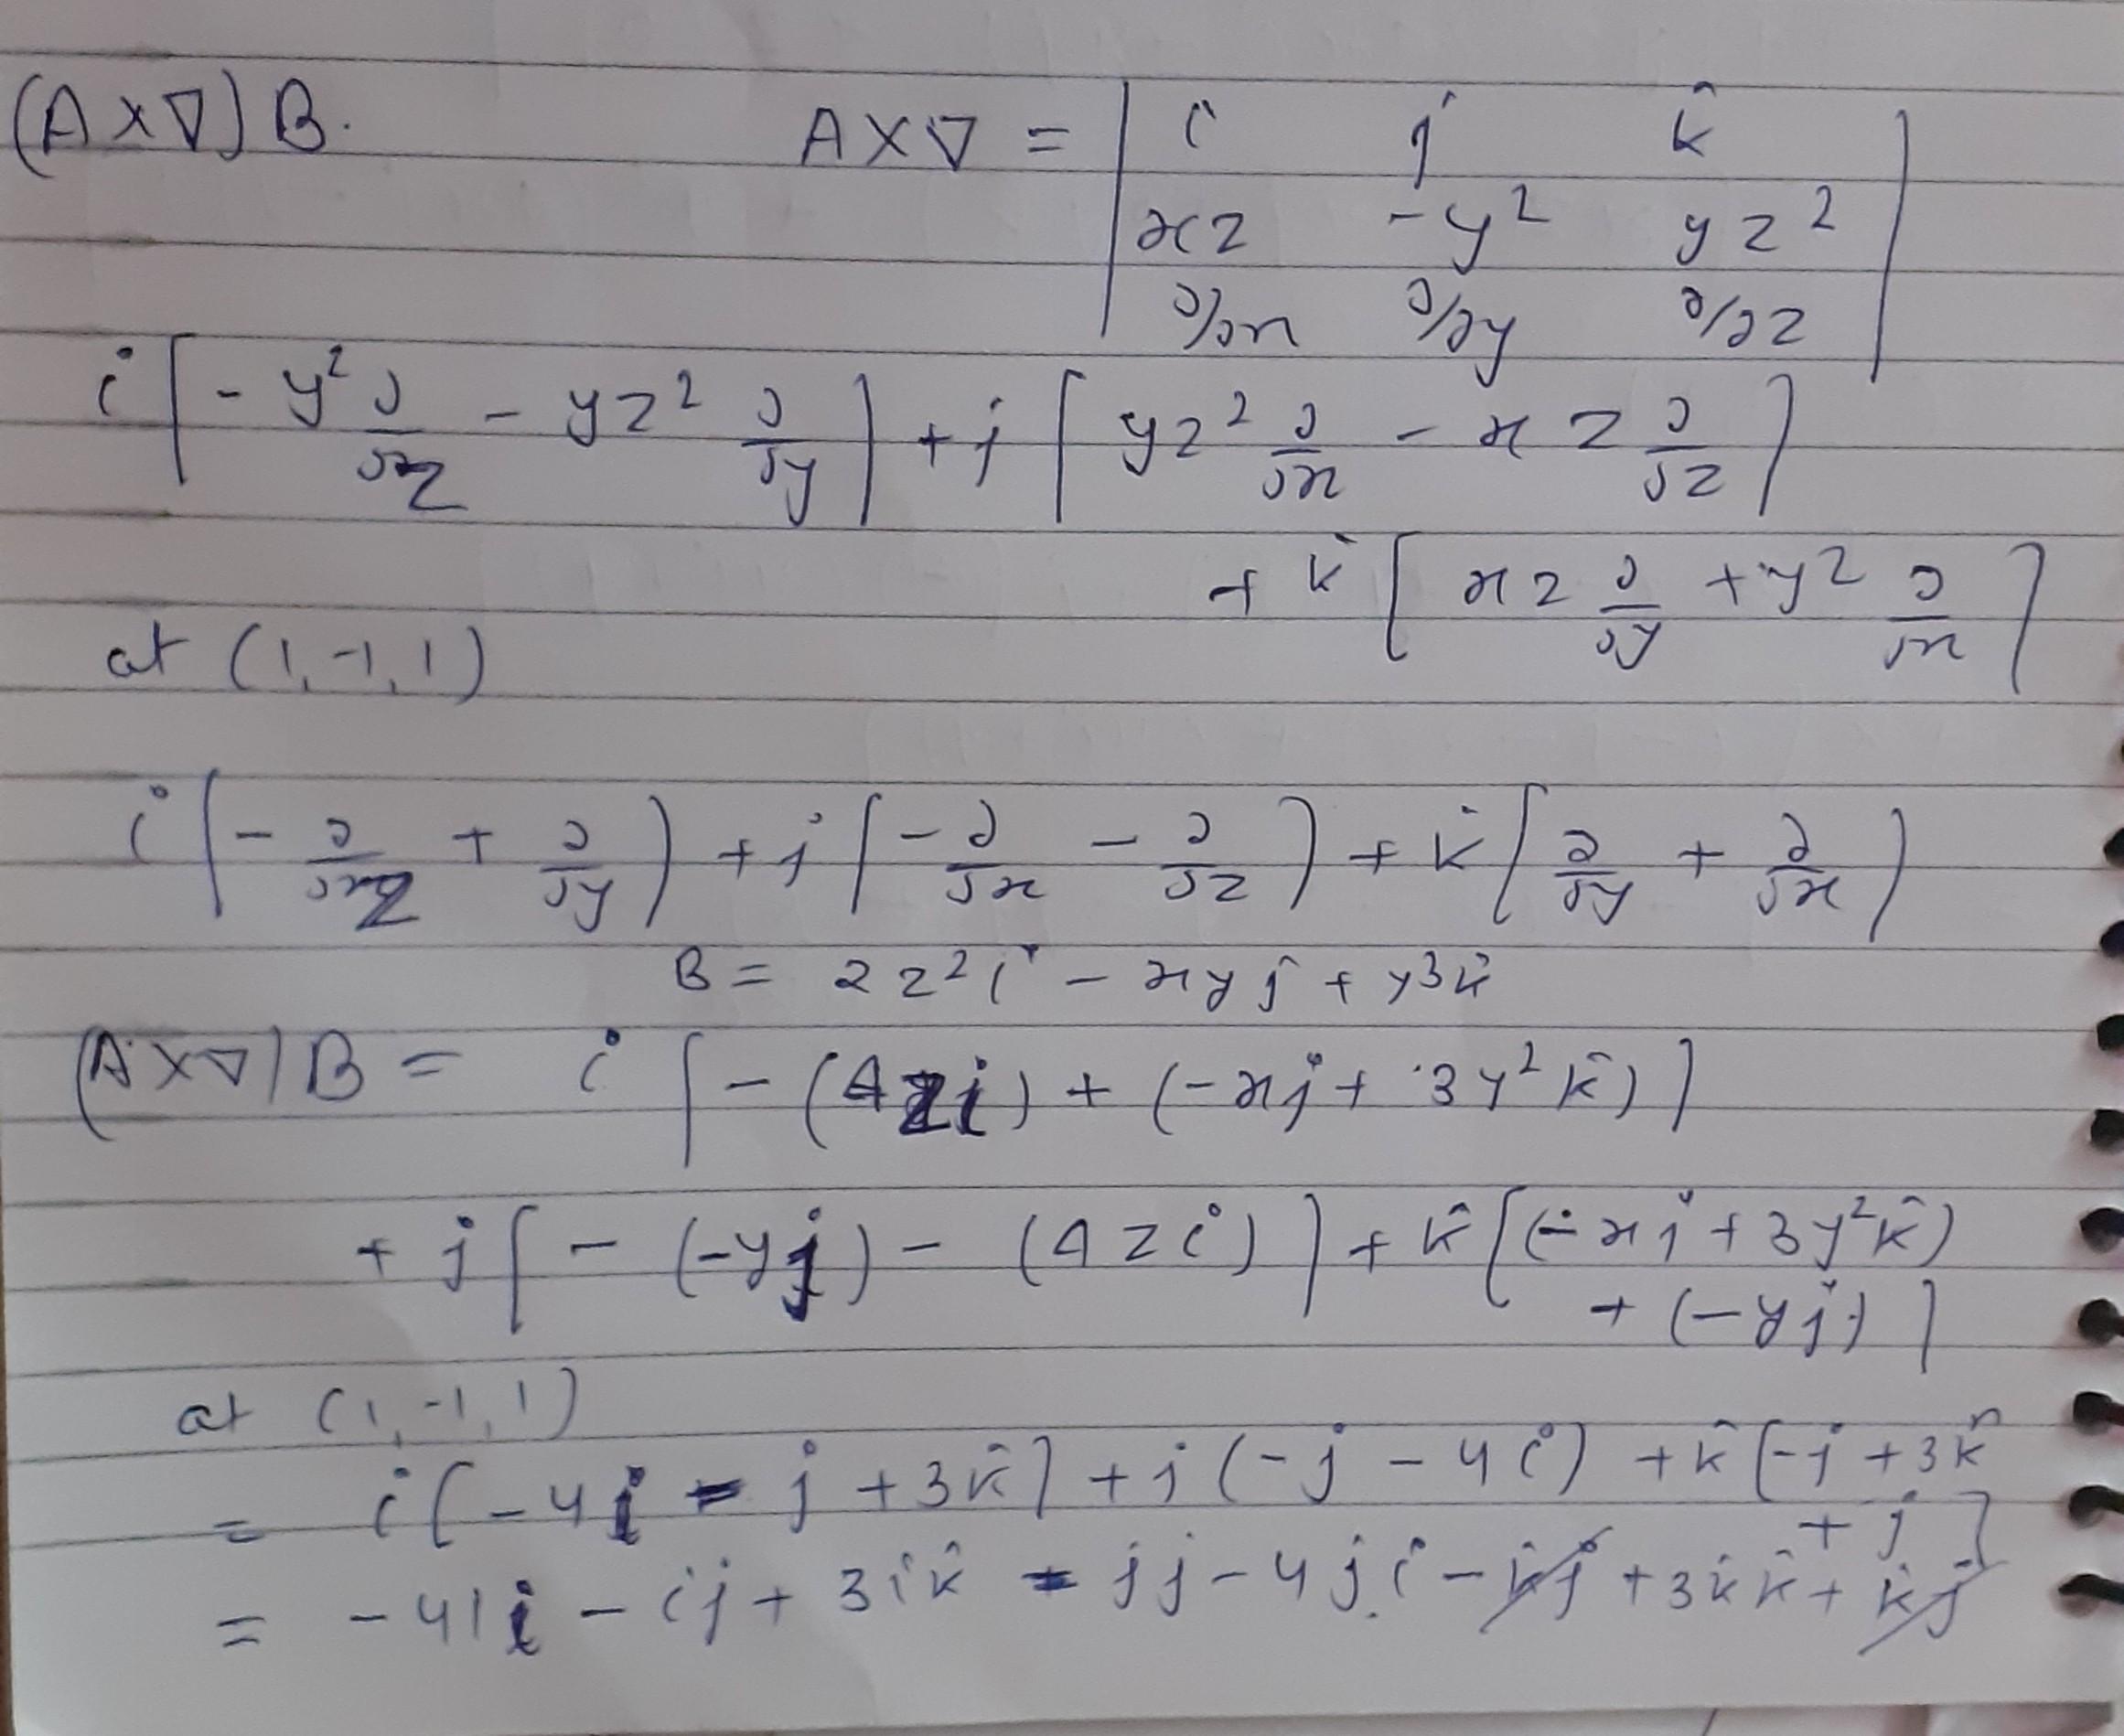 (A×∇)B. A×∇ = | i j k̂ |
| xz -y² yz² |
| ∂/∂x ∂/∂y ∂/∂z |
i [ - y² ∂/∂z - yz² ∂/∂y ] + j [ yz² ∂/∂x - xz ∂/∂z ]
+ k̂ [ xz ∂/∂y + y² ∂/∂x ]
at (1,-1,1)
i [ - ∂/∂z + ∂/∂y ] + j [ -∂/∂x - ∂/∂z ] + k̂ [ ∂/∂y + ∂/∂x ]
B = 2z² i - xy ĵ + y3 k̂
(A×∇)B = i [ - (4zi) + (-xj + 3y² k̂) ]
+ j [ - (-yj) - (4zi) ] + k̂ [ (-xj + 3y²k̂)
+ (-yj) ]
at (1,-1,1)
= i [ -4i - j + 3k̂ ] + j (-j - 4i) + k̂ [-j + 3k̂
+ j ]
= -4ii - ij + 3ik̂ - jj - 4ji - k̂j + 3k̂k̂ + k̂j